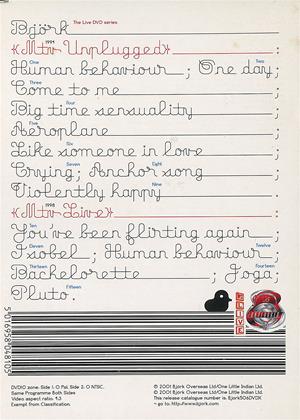 Björk The Live DVD series
1994
«Mtv Unplugged» :
One Two
Human behaviour ; One day ;
Three
Come to me ;
Four
Big time sensuality ;
Five
Aeroplane ;
Six
Like someone in love ;
Seven Eight
Crying ; Anchor song ;
Nine
Violently happy
1998
«Mtv Live» :
Ten
You've been flirting again ;
Eleven Twelve
Isobel ; Human behaviour ;
Thirteen Fourteen
Bachelorette ; Joga ;
Fifteen
Pluto .
LIVE
5 016958 048105
DVD10 zone: Side 1: 0 Pal. Side 2: 0 NTSC.
Same Programme Both Sides
Video aspect ratio: 4:3
Exempt from Classification.
© 2001 Björk Overseas Ltd/One Little Indian Ltd.
℗ 2001 Björk Overseas Ltd/One Little Indian Ltd.
This release catalogue number is. Bjork506DVDX
- go to: http://www.bjork.com